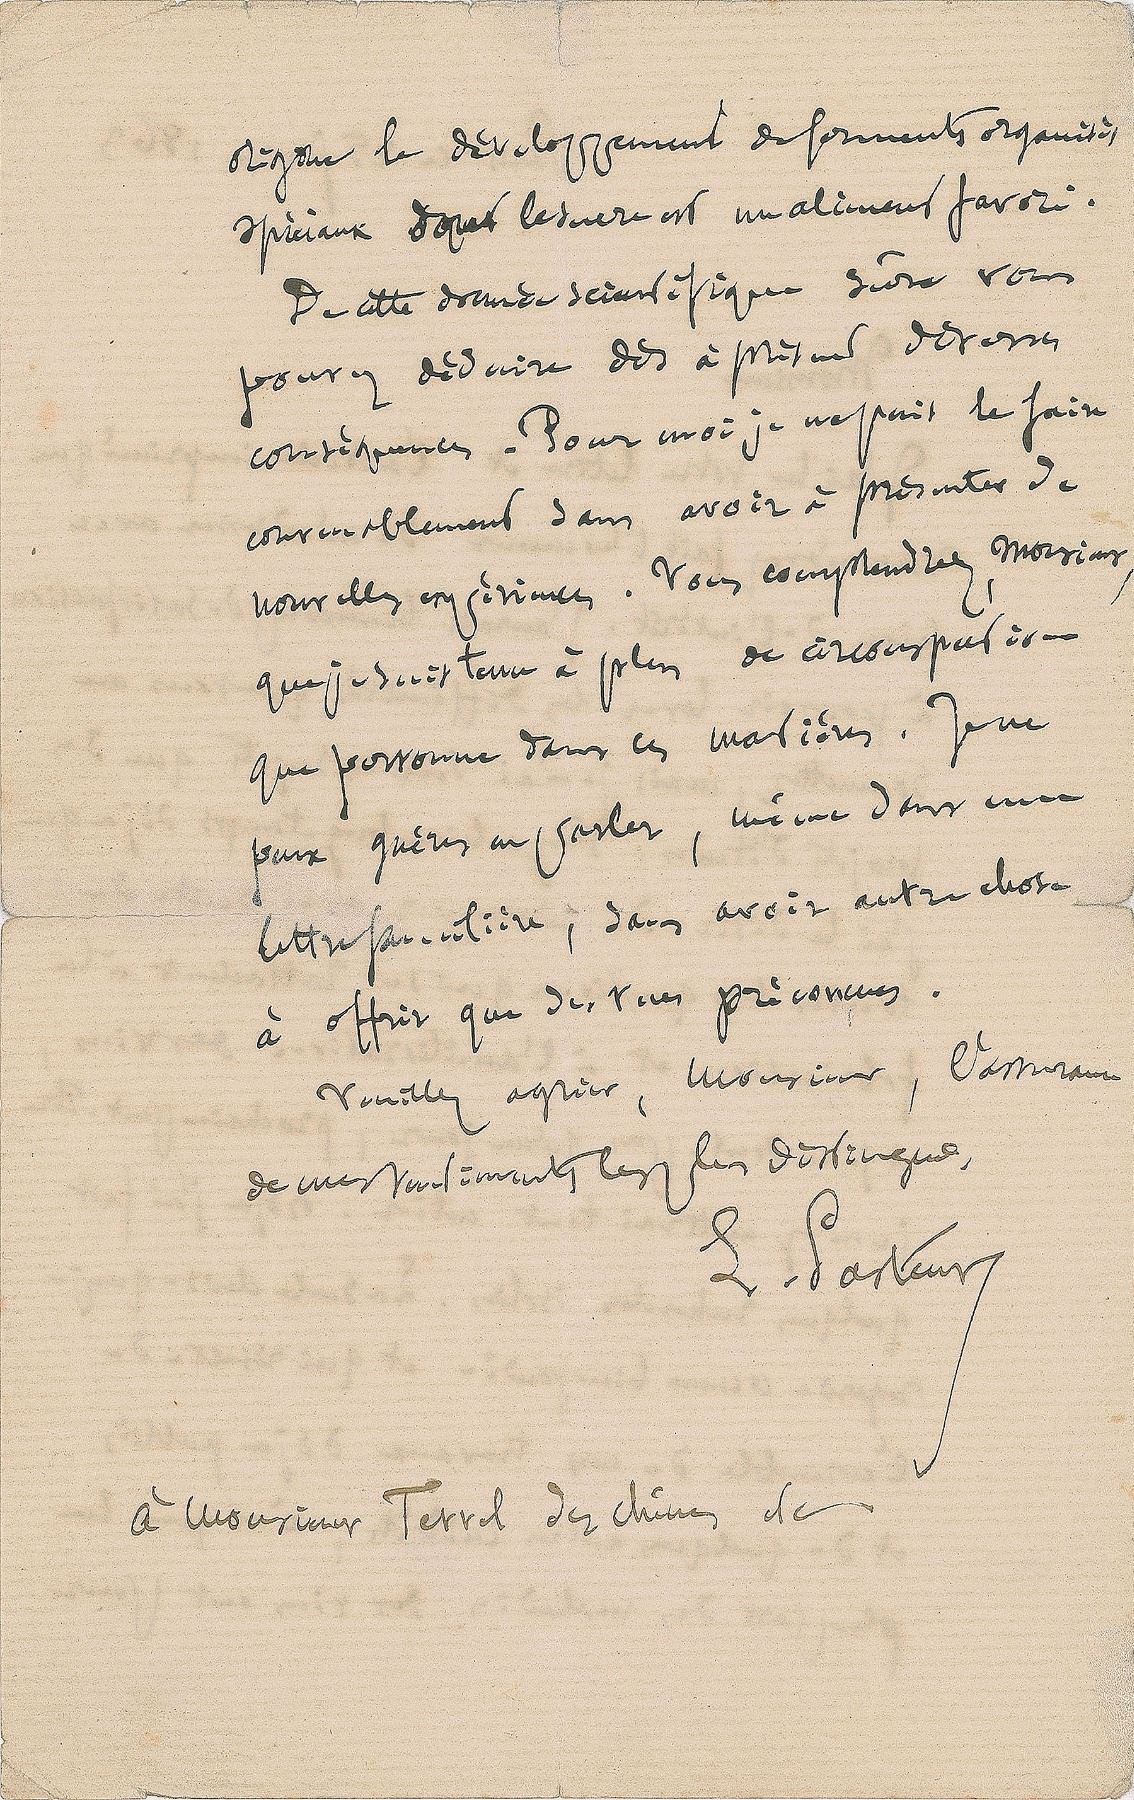 origine le développement de ferments organisés
spéciaux dont le sucre est un aliment favori.
De cette donnée scientifique sûre vous
pouvez déduire dès à présent diverses
conséquences. Pour moi je ne puis le faire
convenablement sans avoir à présenter de
nouvelles expériences. Vous comprendrez, Monsieur,
que je suis tenu à plus de circonspection
que personne dans ces matières. Je ne
puis guères en parler, même dans une
lettre familière, sans avoir autre chose
à offrir que des vues préconçues.
Veuillez agréer, Monsieur, l'assurance
de mes sentiments les plus distingués,
L. Pasteur
à Monsieur Terrel des chênes etc